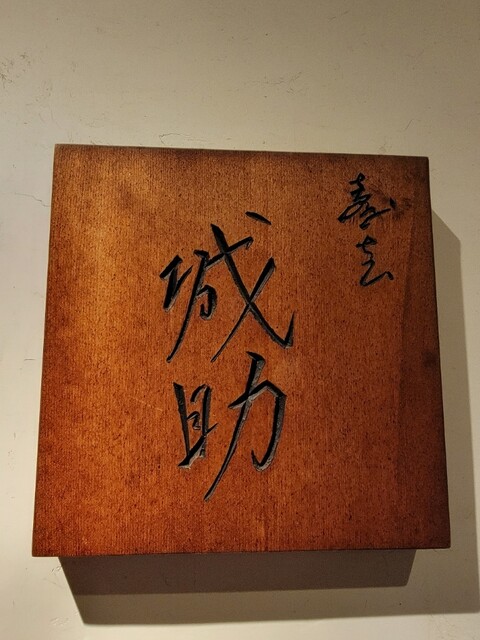 寿志
城助